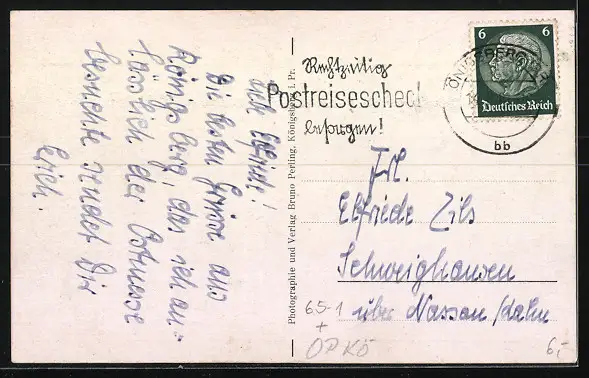 Lieb Elfriede!
Die besten Grüsse aus
Königsberg, das ich an-
lässlich der Ostmesse
besuchte sendet Dir
Erich.
Photographie und Verlag Bruno Perling, Königsberg i. Pr.
Rechtzeitig
Postreisescheck
besorgen!
KÖNIGSBERG
bb
6 6
Deutsches Reich
Frl.
Elfriede Zils
Schweighausen
über Nassau/Lahn
65-1
+
OPKÖ
6,-